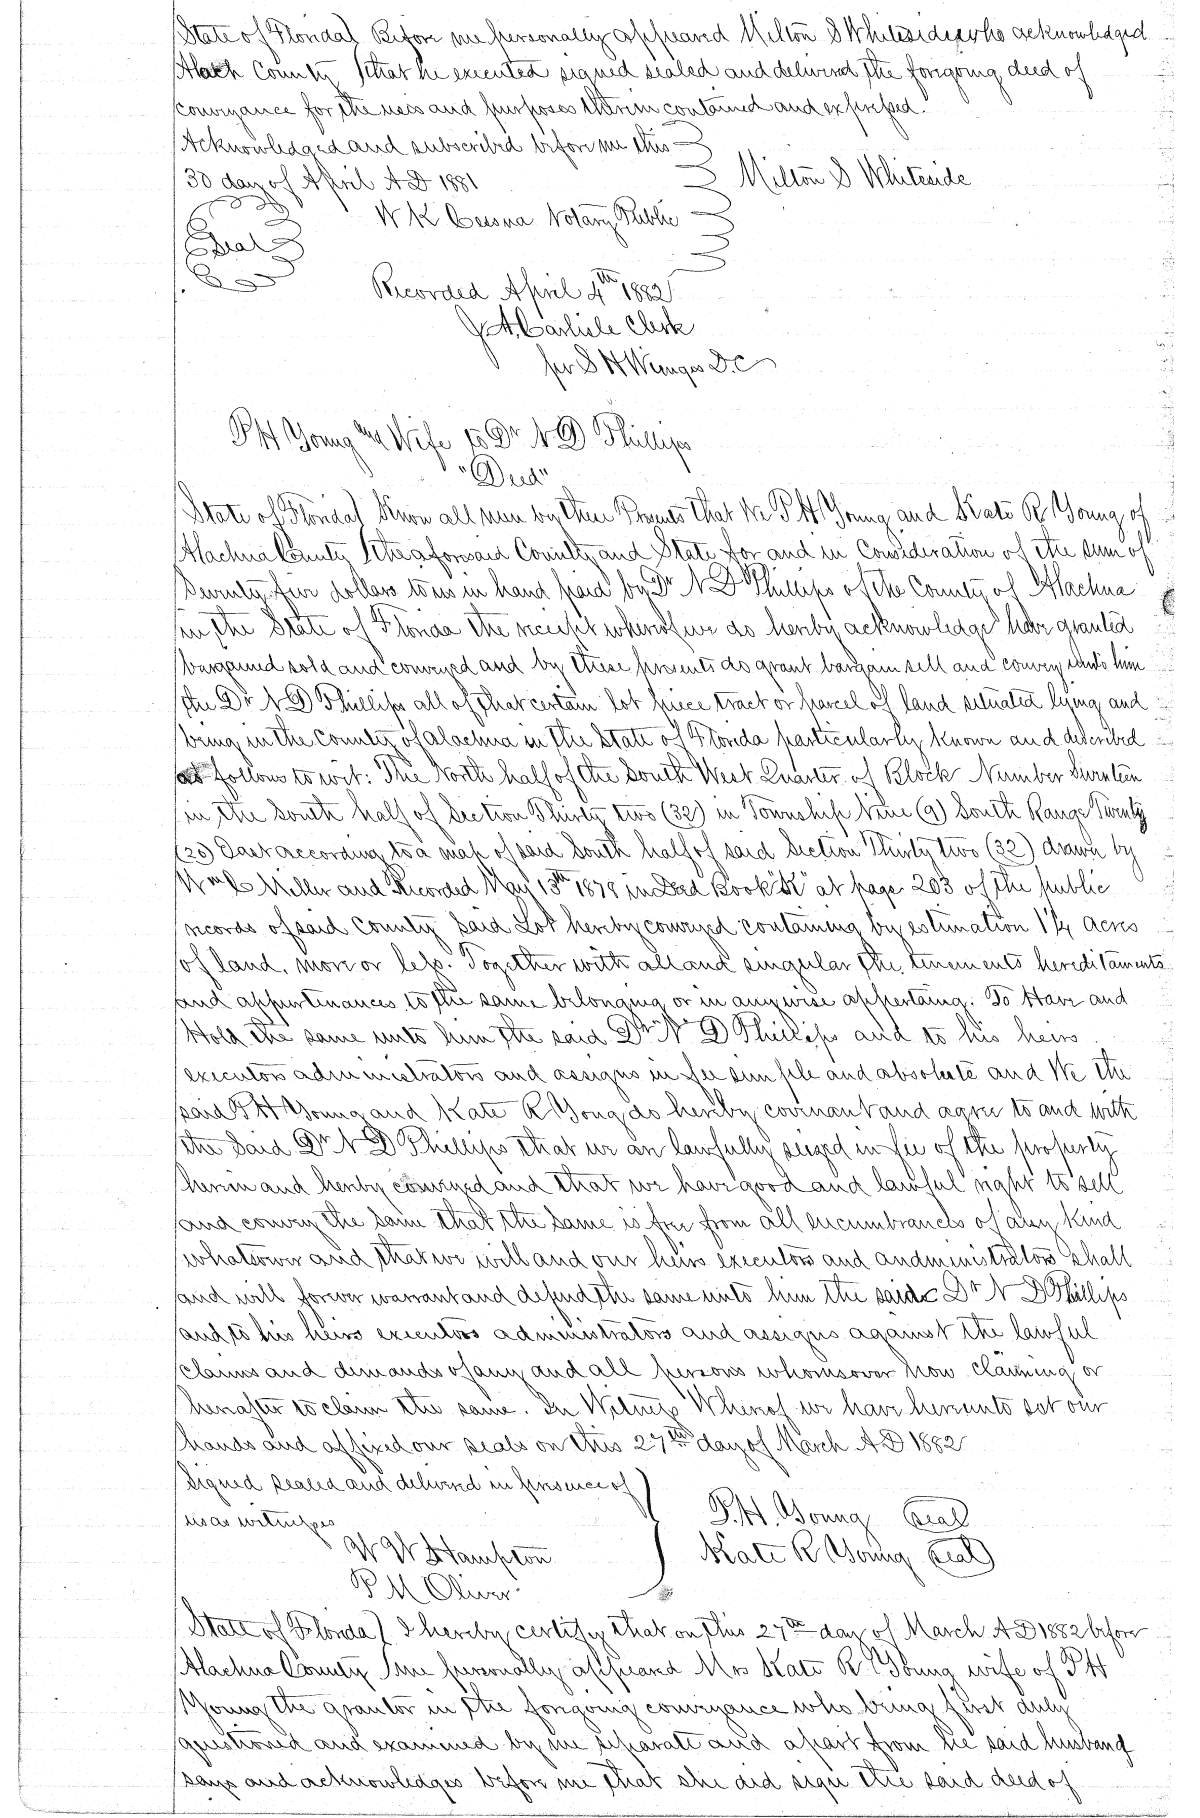 State of Florida) Before me personally appeared Milton S Whiteside who acknowledged
Alach County ) that he executed signed sealed and delivered the foregoing deed of
conveyance for the uses and purposes therein contained and expressed.
Acknowledged and subscribed before me this
30 day of April A D 1881
Milton S Whiteside
W K Cessna Notary Public
Seal
Recorded April 4th 1882
J A. Carlisle Clerk
per S H Wienges D.C
P H Young and Wife to Dr N D Phillips
"Deed"
State of Florida) Know all men by these Presents that We P H Young and Kate R Young of
Alachua County ) the aforesaid County and State for and in Consideration of the sum of
Seventy five dollars to us in hand paid by Dr N D Phillips of the County of Alachua
in the State of Florida the receipt whereof we do hereby acknowledge have granted
bargained sold and conveyed and by these presents do grant bargain sell and convey unto him
the Dr N D Phillips all of that certain lot piece tract or parcel of land situated lying and
being in the County of Alachua in the State of Florida particularly known and described
as follows to wit: The North half of the South West Quarter of Block Number Seventeen
in the South half of Section Thirty two (32) in Township Nine (9) South Range Twenty
(20) East according to a map of said South half of said Section Thirty two (32) drawn by
Wm C Miller and Recorded May 13th 1879 in Dead Book "K" at page 203 of the public
records of said County Said Lot hereby conveyed containing by estimation 1¼ acres
of land, more or less. Together with all and singular the tenements hereditaments
and appurtinances to the same belonging or in anywise appertaing. To Have and
Hold the same unto him the said Dr N D Phillips and to his heirs
executors administrators and assigns in fee simple and absolute and We the
said P H Young and Kate R Yong do hereby covenant and agree to and with
the said Dr N D Phillips that we are lawfully seized in fee of the property
herein and hereby conveyed and that we have good and lawful right to sell
and convey the same that the same is free from all encumbrances of any kind
whatsoever and that we will and our heirs executors and andministrators shall
and will forever warrant and defend the same unto him the said Dr N D Phillips
and to his heirs executors administrators and assigns against the lawful
claims and demands of any and all persons whomsoever now claiming or
hereafter to claim the same. In Witness Whereof we have hereunto set our
hands and affixed our seals on this 27th day of March A D 1882
Signed sealed and delivered in presence of
us as witnesses
P. H. Young seal
W W Hampton
Kate R Young seal
P M Oliver
State of Florida) I hereby certify that on this 27th day of March A D 1882 before
Alachua County ) me personally appeared Mrs Kate R Young wife of P H
Young the grantor in the foregoing conveyance who being first duly
questioned and examined by me separate and apart from he said husband
says and acknowledges before me that she did sign the said deed of